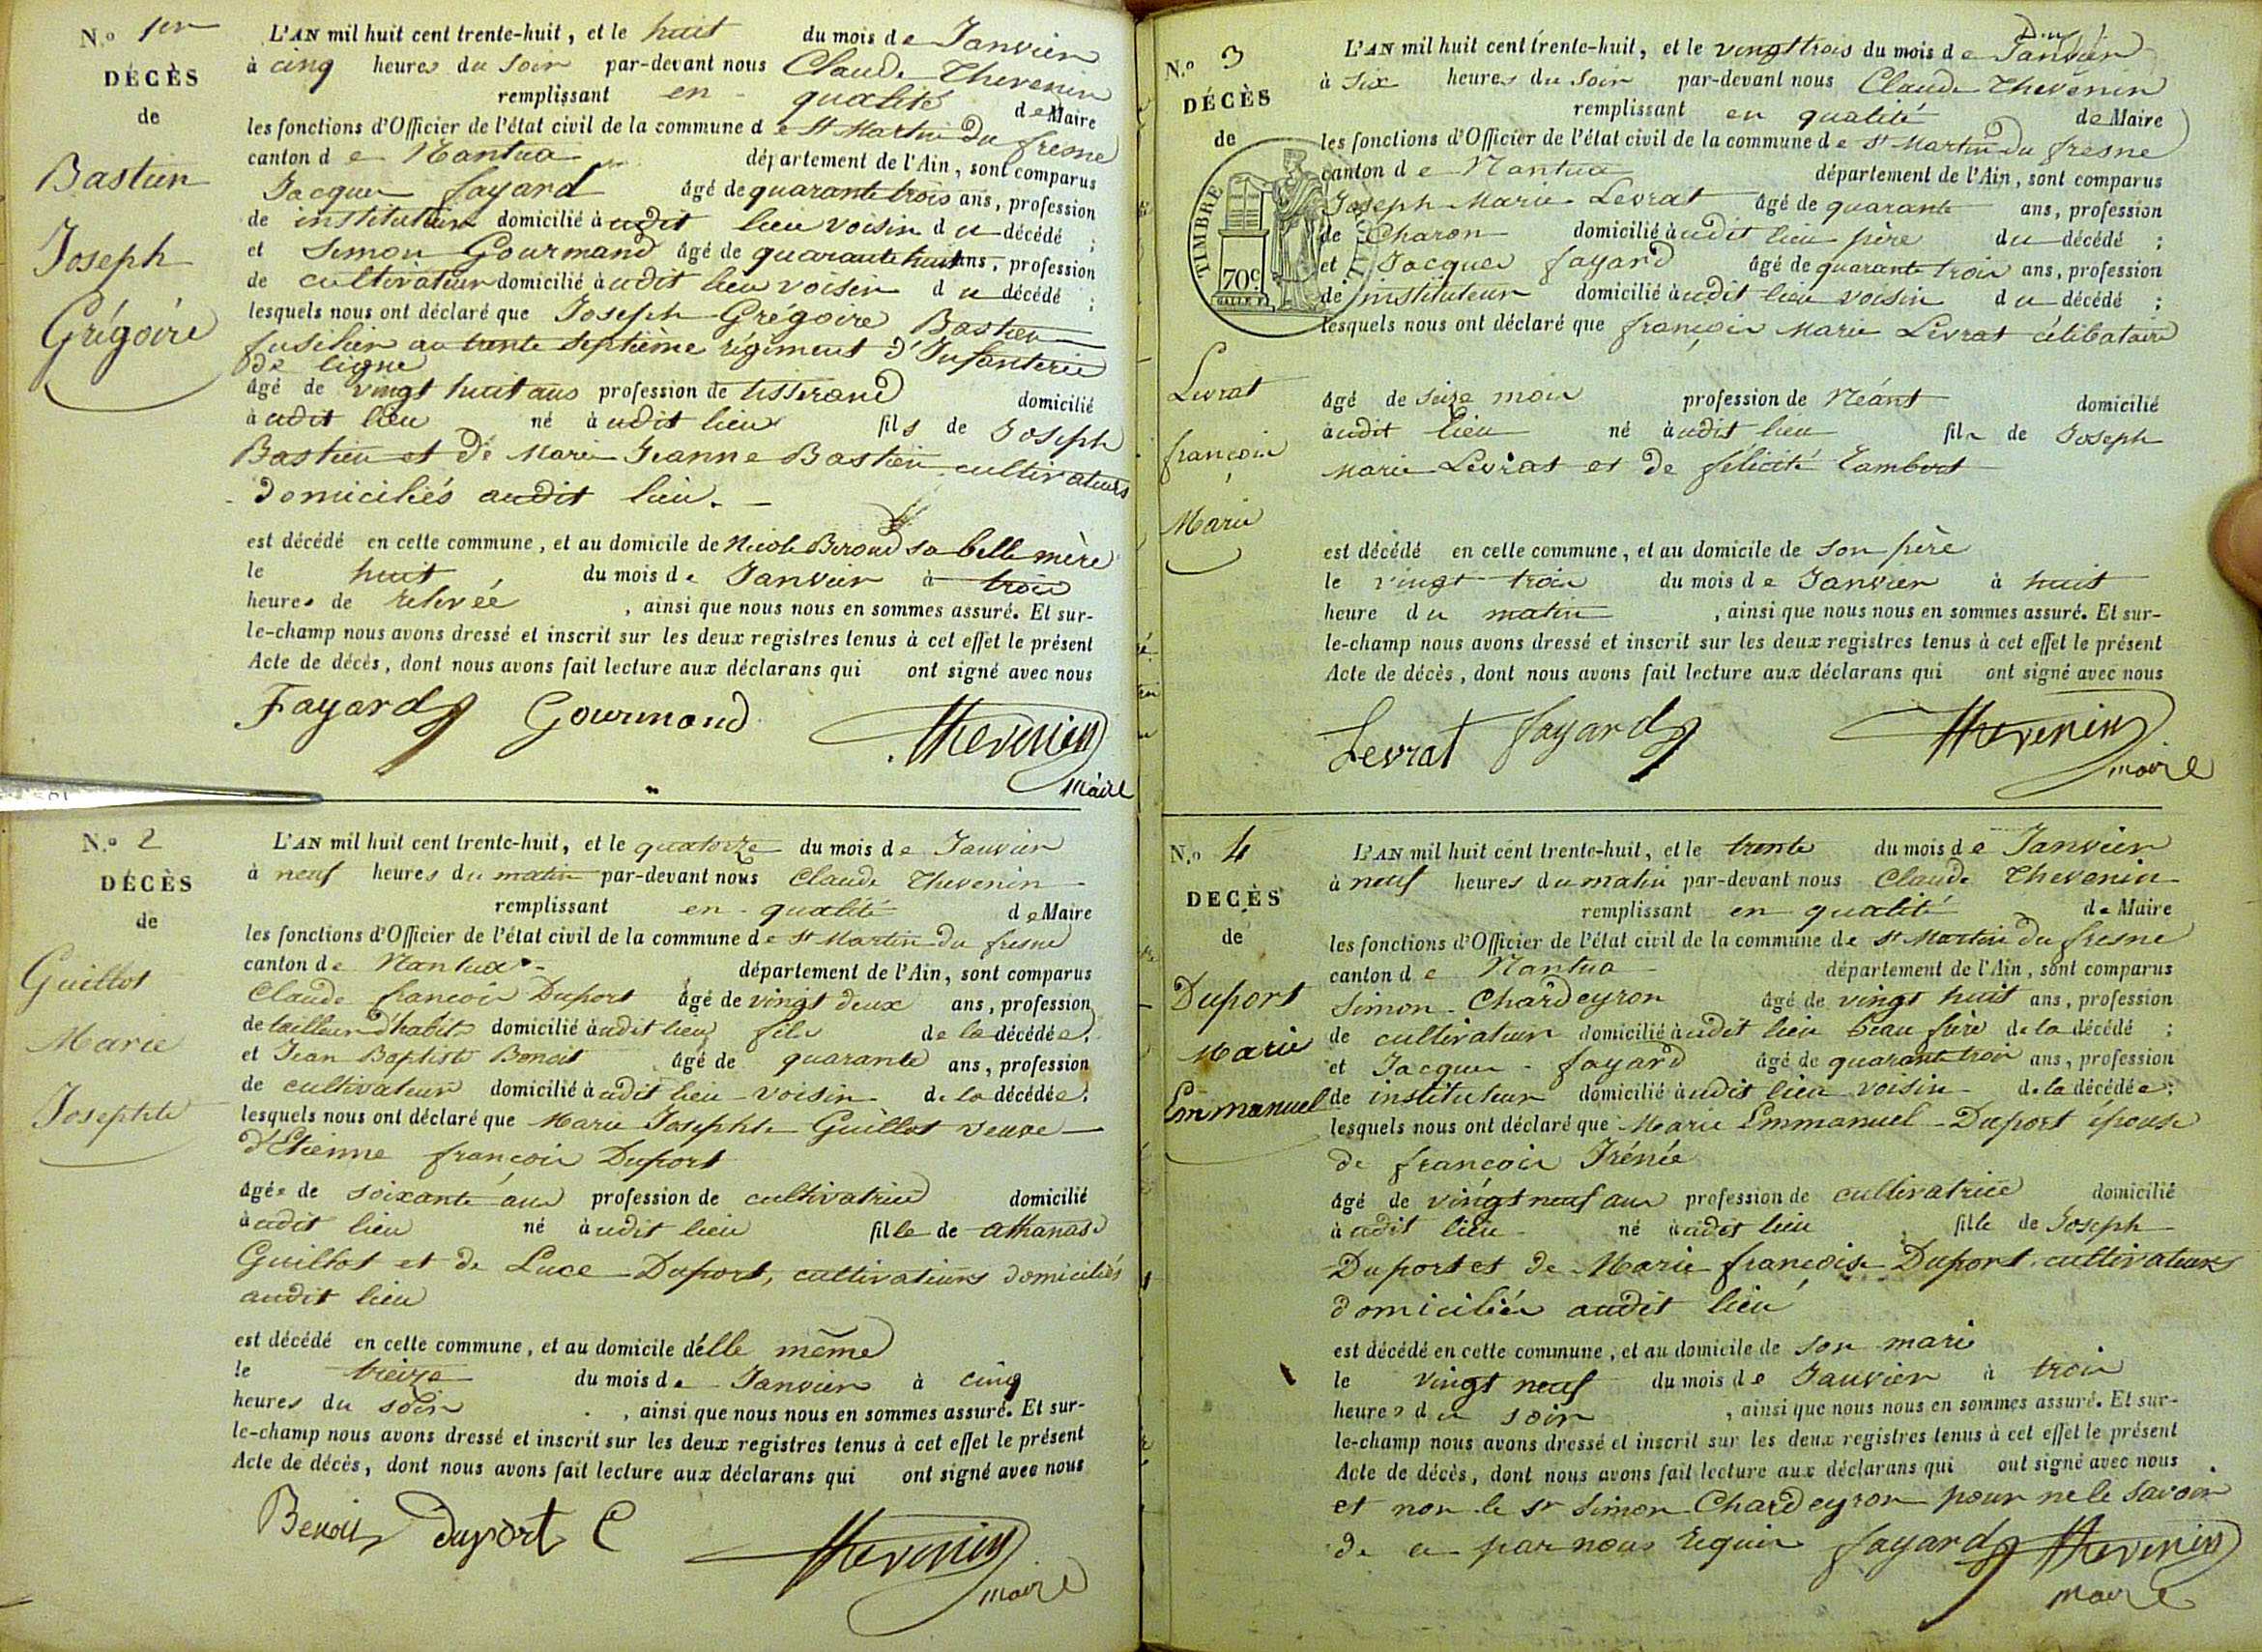 N.º 1er
DÉCÈS
de
Bastien
Joseph
Grégoire
L'AN mil huit cent trente-huit, et le huit du mois de Janvier
à cinq heures du Soir par-devant nous Claude Thevenin
remplissant en qualité de Maire
les fonctions d'Officier de l'état civil de la commune de St Martin du fresne
canton de Nantua département de l'Ain, sont comparus
Jacques fayard âgé de quarante trois ans, profession
de instituteur domicilié audit lieu voisin du décédé ;
et Simon Gourmand âgé de quarante huit ans, profession
de cultivateur domicilié audit lieu voisin du décédé ;
lesquels nous ont déclaré que Joseph Grégoire Bastien
fusilier au trente septième régiment d'Infanterie
de ligne
âgé de vingt huit ans profession de tisserand domicilié
audit lieu né audit lieu fils de Joseph
Bastien et de Marie Jeanne Bastien cultivateurs
domiciliés audit lieu.
est décédé en cette commune, et au domicile de Nicole Beroud sa belle mère
le huit du mois de Janvier à trois
heures de relevée , ainsi que nous nous en sommes assuré. Et sur-
le-champ nous avons dressé et inscrit sur les deux registres tenus à cet effet le présent
Acte de décès, dont nous avons fait lecture aux déclarans qui ont signé avec nous
Fayard Gourmand Thevenin
maire
N.º 2
DÉCÈS
de
Guillot
Marie
Josephte
L'AN mil huit cent trente-huit, et le quatorze du mois de Janvier
à neuf heures du matin par-devant nous Claude Thevenin
remplissant en qualité de Maire
les fonctions d'Officier de l'état civil de la commune de St Martin du fresne
canton de Nantua département de l'Ain, sont comparus
Claude françois Duport âgé de vingt deux ans, profession
de tailleur d'habits domicilié audit lieu fils de la décédée ;
et Jean Baptiste Benoit âgé de quarante ans, profession
de cultivateur domicilié audit lieu voisin de la décédée ;
lesquels nous ont déclaré que Marie Josephte Guillot veuve
d'Etienne françois Duport
âgée de soixante ans profession de cultivatrice domicilié
audit lieu né audit lieu fille de athanase
Guillot et de Luce Duport, cultivateurs domiciliés
audit lieu
est décédé en cette commune, et au domicile d'elle même
le treize du mois de Janvier à cinq
heures du soir , ainsi que nous nous en sommes assuré. Et sur-
le-champ nous avons dressé et inscrit sur les deux registres tenus à cet effet le présent
Acte de décès, dont nous avons fait lecture aux déclarans qui ont signé avec nous
Benoit duport C Thevenin
maire
N.º 3
DÉCÈS
de
TIMBRE
70c
Levrat
françois
Marie
L'AN mil huit cent trente-huit, et le vingt trois du mois de Janvier
à six heures du Soir par-devant nous Claude Thevenin
remplissant en qualité de Maire
les fonctions d'Officier de l'état civil de la commune de St Martin du fresne
canton de Nantua département de l'Ain, sont comparus
Joseph Marie Levrat âgé de quarante ans, profession
de Charon domicilié audit lieu père du décédé ;
et Jacques fayard âgé de quarante trois ans, profession
de instituteur domicilié audit lieu voisin du décédé ;
lesquels nous ont déclaré que françois Marie Levrat célibataire
âgé de seize mois profession de Néant domicilié
audit lieu né audit lieu fils de Joseph
Marie Levrat et de félicité
est décédé en cette commune, et au domicile de son père
le vingt trois du mois de Janvier à huit
heure du matin , ainsi que nous nous en sommes assuré. Et sur-
le-champ nous avons dressé et inscrit sur les deux registres tenus à cet effet le présent
Acte de décès, dont nous avons fait lecture aux déclarans qui ont signé avec nous
Levrat fayard Thevenin
maire
N.º 4
DECÈS
de
Duport
Marie
Emmanuel
L'AN mil huit cent trente-huit, et le trente du mois de Janvier
à neuf heures du matin par-devant nous Claude Thevenin
remplissant en qualité de Maire
les fonctions d'Officier de l'état civil de la commune de St Martin du fresne
canton de Nantua département de l'Ain, sont comparus
Simon Chardeyron âgé de vingt huit ans, profession
de cultivateur domicilié audit lieu beau frère de la décédé ;
et Jacques fayard âgé de quarante trois ans, profession
de instituteur domicilié audit lieu voisin de la décédée ;
lesquels nous ont déclaré que Marie Emmanuel Duport épouse
de françois Irénée
âgé de vingt neuf ans profession de cultivatrice domicilié
audit lieu né audit lieu fille de Joseph
Duport et de Marie françoise Duport cultivateurs
domiciliés audit lieu
est décédé en cette commune, et au domicile de son mari
le vingt neuf du mois de Janvier à trois
heures du soir , ainsi que nous nous en sommes assuré. Et sur-
le-champ nous avons dressé et inscrit sur les deux registres tenus à cet effet le présent
Acte de décès, dont nous avons fait lecture aux déclarans qui ont signé avec nous
et non le sr Simon Chardeyron pour ne le savoir
de ce par nous requis fayard Thevenin
maire